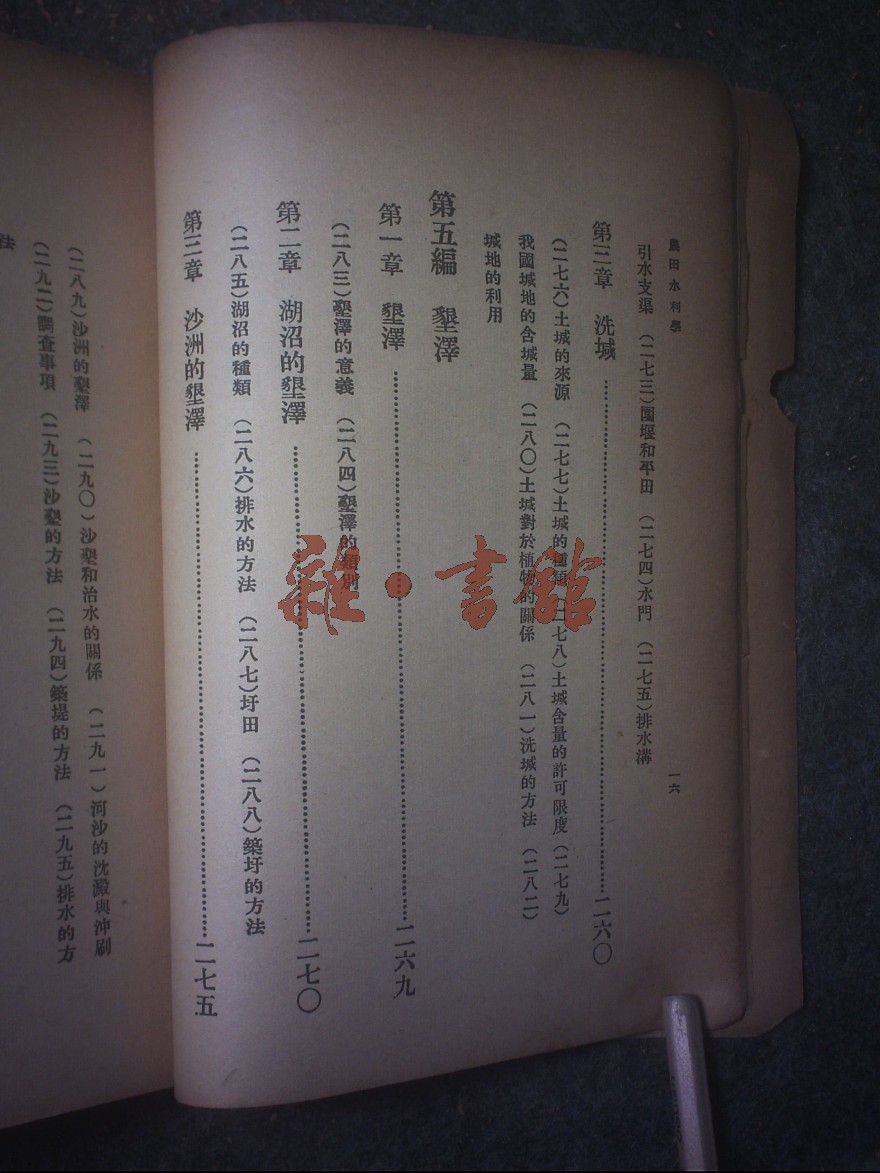 農田水利學
一六
引水支渠 (二七三)圍堰和平田 (二七四)水門 (二七五)排水溝
第三章 洗堿……二六〇
(二七六)土堿的來源 (二七七)土堿的種類 (二七八)土堿含量的許可限度 (二七九)
我國堿地的含堿量 (二八〇)土堿對於植物的關係 (二八一)洗堿的方法 (二八二)
堿地的利用
第五編 墾澤
第一章 墾澤……二六九
(二八三)墾澤的意義 (二八四)墾澤的類別
第二章 湖沼的墾澤……二七〇
(二八五)湖沼的種類 (二八六)排水的方法 (二八七)圩田 (二八八)築圩的方法
第三章 沙洲的墾澤……二七五
(二八九)沙洲的墾澤 (二九〇)沙墾和治水的關係 (二九一)河沙的沈澱與沖刷
(二九二)調查事項 (二九三)沙墾的方法 (二九四)築堤的方法 (二九五)排水的方
法
雜·書館